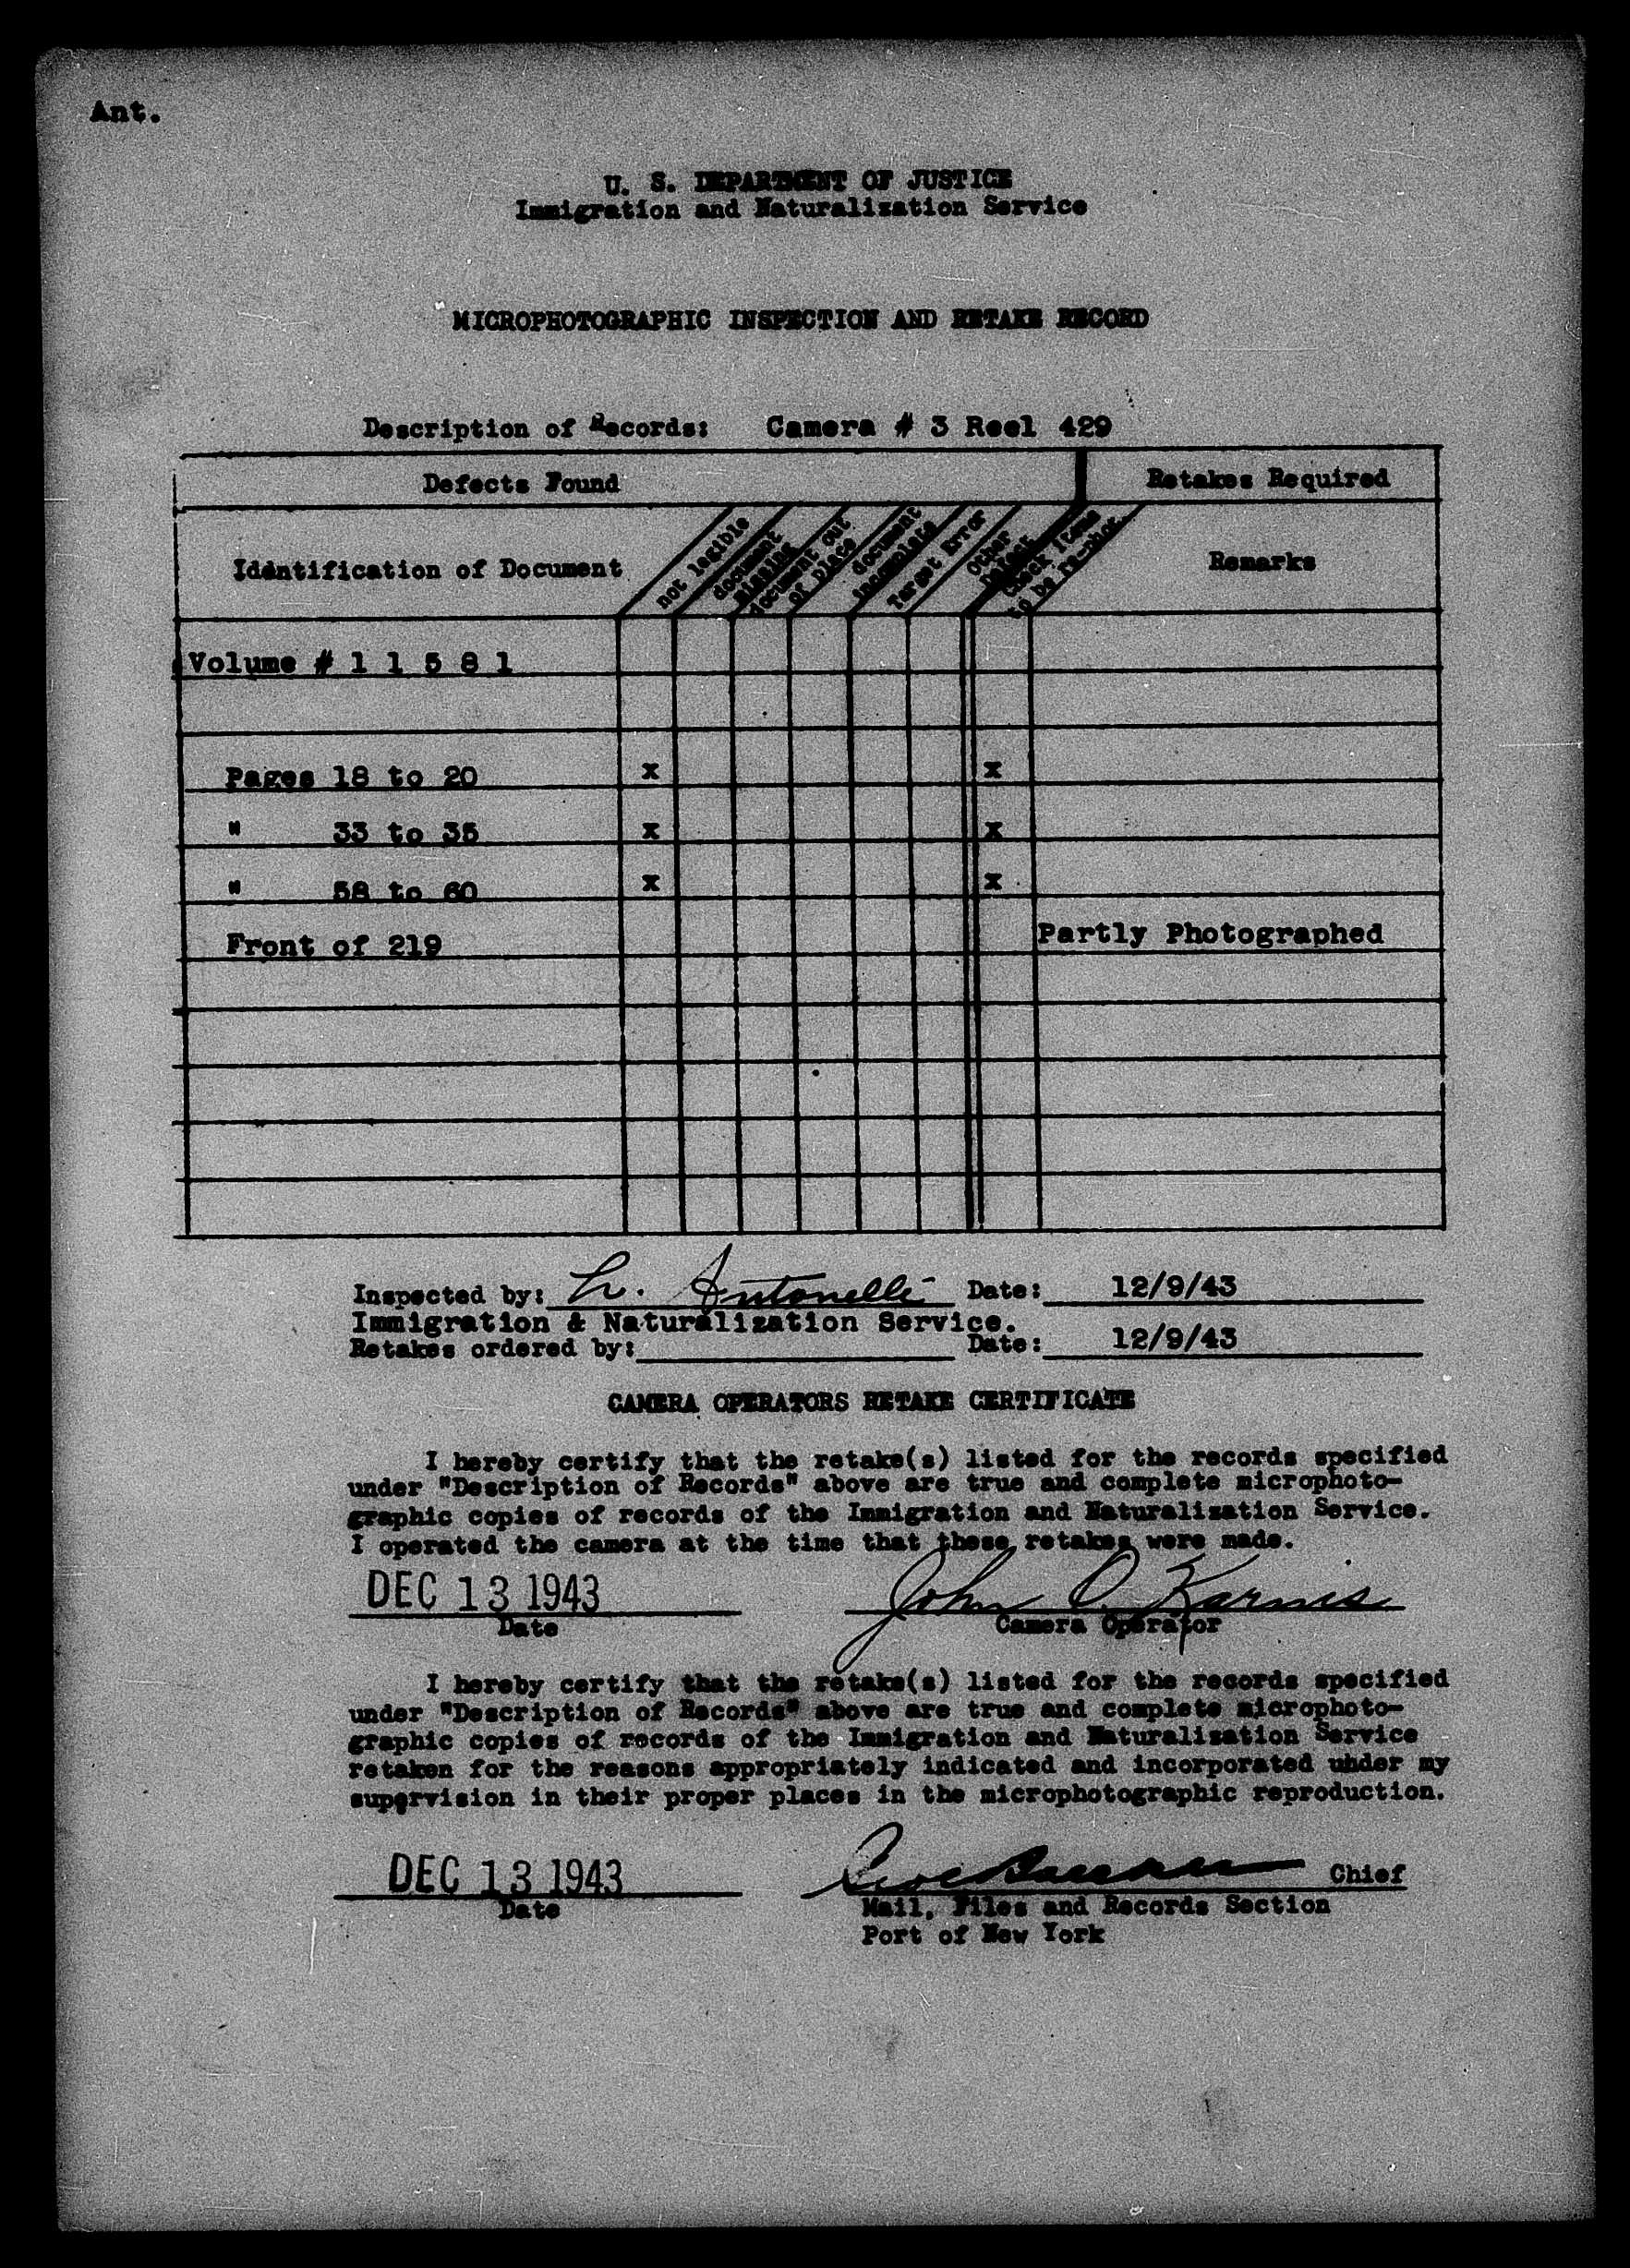 Ant.
U. S. DEPARTMENT OF JUSTICE
Immigration and Naturalization Service
MICROPHOTOGRAPHIC INSPECTION AND RETAKE RECORD
Description of Records: Camera # 3 Reel 429
Defects Found Retakes Required
Identification of Document
not legible
document missing
document out of place
document incomplete
Target Error
Other Defect
Check items to be re-phot.
Remarks
Volume # 1 1 5 8 1
Pages 18 to 20 x x
" 33 to 35 x x
" 58 to 60 x x
Front of 219 Partly Photographed
Inspected by: L. Antonelli Date: 12/9/43
Immigration & Naturalization Service.
Retakes ordered by: Date: 12/9/43
CAMERA OPERATORS RETAKE CERTIFICATE
I hereby certify that the retake(s) listed for the records specified
under "Description of Records" above are true and complete microphoto-
graphic copies of records of the Immigration and Naturalization Service.
I operated the camera at the time that these retakes were made.
DEC 13 1943 John O. Karnis
Date Camera Operator
I hereby certify that the retake(s) listed for the records specified
under "Description of Records" above are true and complete microphoto-
graphic copies of records of the Immigration and Naturalization Service
retaken for the reasons appropriately indicated and incorporated under my
supervision in their proper places in the microphotographic reproduction.
DEC 13 1943 Chief
Date Mail, Files and Records Section
Port of New York